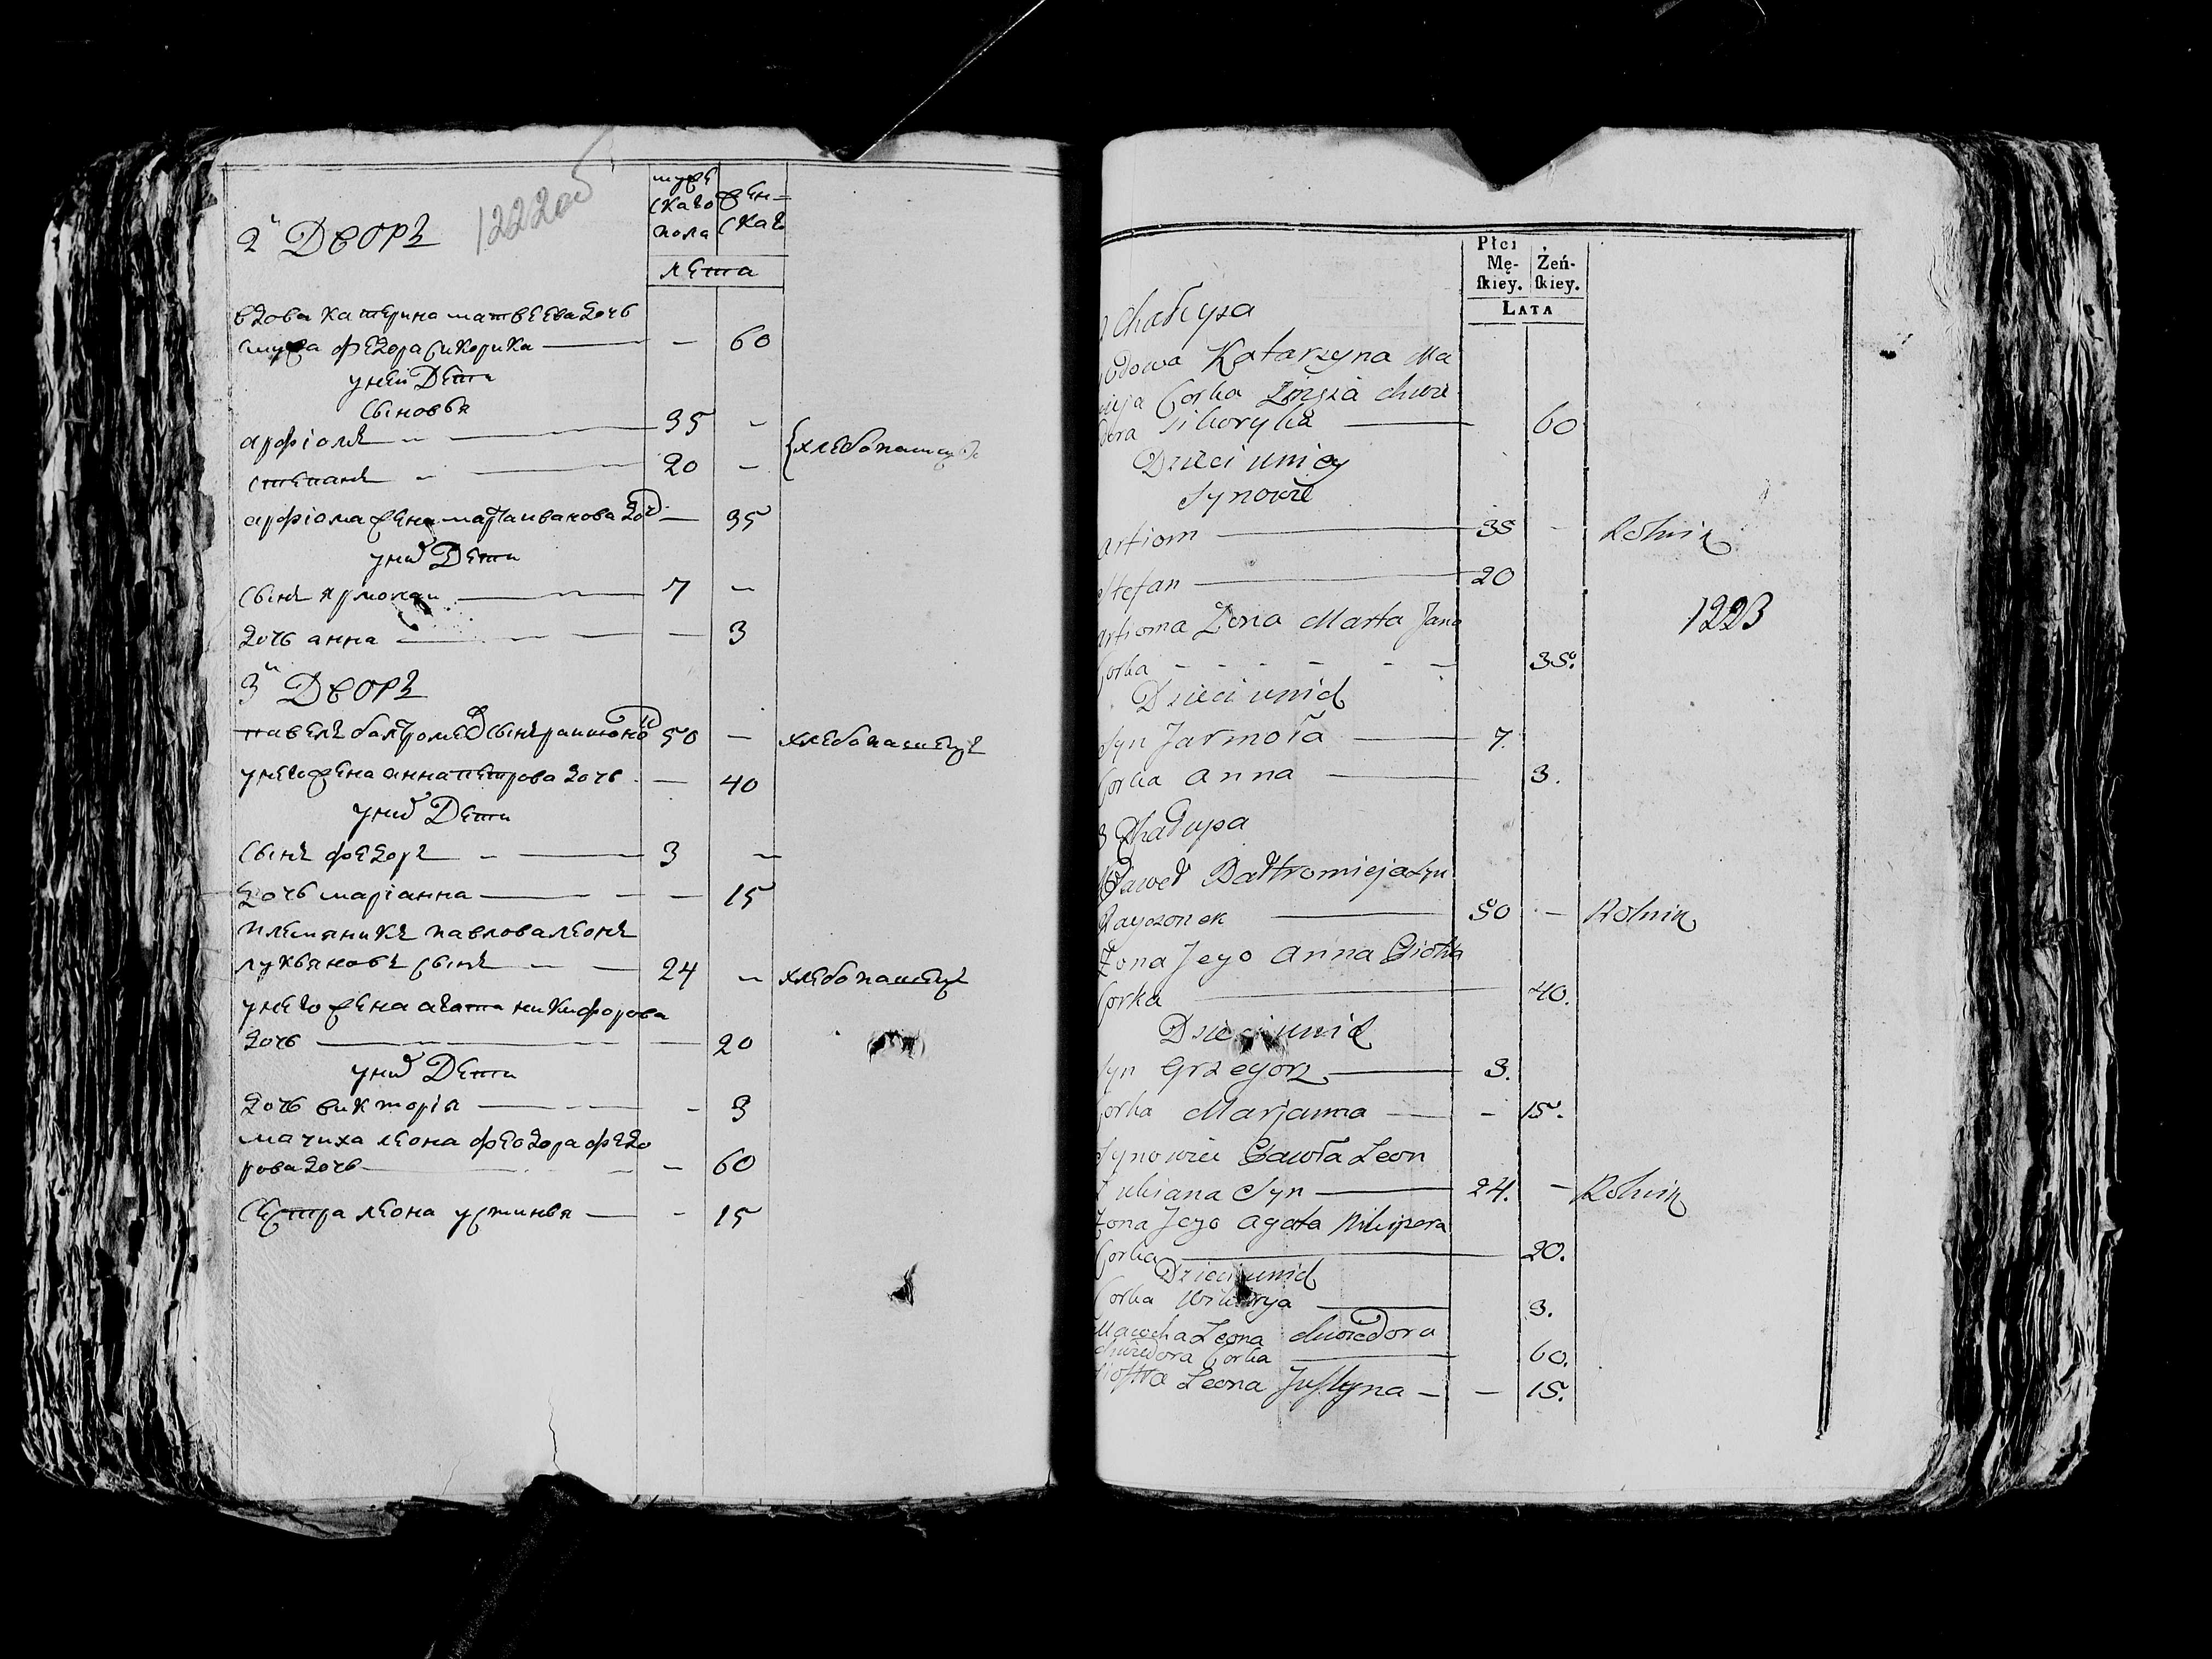 2й Дворъ
1222об
мужескаго пола
женскаго
лета
вдова катерина матвеева дочь
мужа федора сикорика — — 60
у ней Дети
сыновья
арфіомъ — 35 —
степанъ — 20 —
{хлебопашцы
арфіома жена марта иванова доч — 35
у них Дети
сынъ ярмолай — 7 —
дочь анна — — 3
3й Дворъ
павелъ балтромеев сынъ 50 — хлебопашецъ
у него жена анна петрова дочь — 40
у них Дети
сынъ федоръ — 3 —
дочь маріанна — — 15
племяникъ павлова леонъ
лукьяновъ сынъ — 24 — хлебопашецъ
у него жена агата никифорова
дочь — — 20
у них Дети
дочь викторія — — 3
мачиха леона феодора федо
рова дочь — — 60
сестра леона устинья — — 15
Płci
Mę-
ſkiey.
Żeń-
ſkiey.
LATA
Chałupa
wdowa Katarzyna Ma
cieja Corka chwe
dora Sikoryka — 60
Dzieci u niey
Synowie
artiom — 35 — Rolnik
Stefan — 20
1223
artioma Żona Marta Jana
Corka — 35.
Dzieci u nich
Syn Jarmoła — 7.
Corka anna — 3.
3 Chałupa
Paweł Bałtromieja Syn
Rayczonek — 50 — Rolnik
Żona Jego anna Piotra
Corka — 40.
Dzieci u nich
Syn Grzegorz — 3.
Corka Marjanna — — 15.
Synowiec Pawła Leon
Łukiana Syn — 24. — Rolnik
Żona Jego agata Nikipera
Corka — 20.
Dzieci u nich
Corka Wiktorya — 3.
Macocha Leona chwiedora
chwiedora Corka — 60.
Siostra Leona Justyna — — 15.